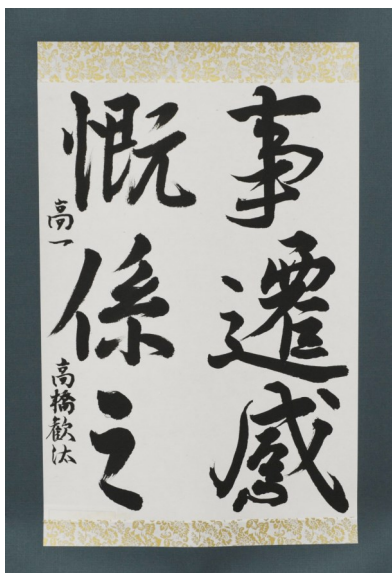 事遷感
慨係之
高一 高橋歓汰